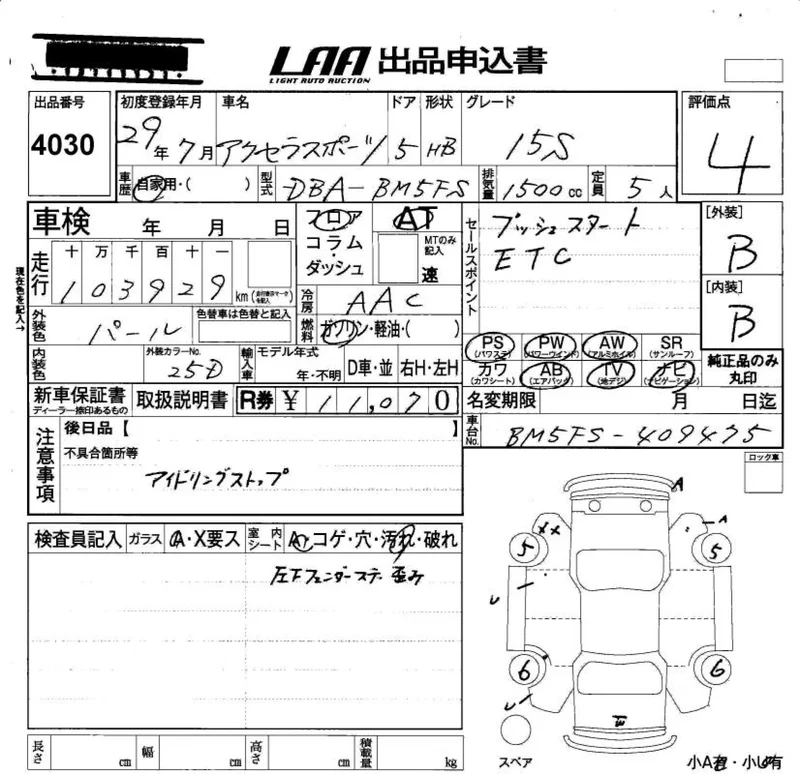 LAA 出品申込書
LIGHT AUTO AUCTION
出品番号 初度登録年月 車名 ドア 形状 グレード 評価点
4030 29年 7月 アクセラスポーツ 5 HB 15S 4
車歴 自家用・( ) 型式 DBA-BM5FS 排気量 1500cc 定員 5人
車検 年 月 日 フロア AT セールスポイント プッシュスタート [外装]
現在色を記入→ 走行 十 万 千 百 十 一 コラム・ MTのみ記入 ETC B
1 0 3 9 2 9 km (走行要確マークを記入) ダッシュ 速 [内装]
冷房 AAC B
外装色 パール 色替車は色替と記入 燃料 ガソリン・軽油・( ) PS(パワステ) PW(パワーウインド) AW(アルミホイル) SR(サンルーフ)
内装色 外装カラーNo. 25D 輸入車 モデル年式 年・不明 D車・並 右H・左H カワ(カワシート) AB(エアバッグ) TV(地デジ) ナビ(ナビゲーション) 純正品のみ丸印
新車保証書 ディーラー捺印あるもの 取扱説明書 R券 ¥ 11,070 名変期限 月 日迄
注意事項 後日品【 】 車台No. BM5FS-409475
不具合箇所等 ロック車
アイドリングストップ
A
検査員記入 ガラス A・X要ス 室内シート A・コゲ・穴・汚れ・破れ XX A
5 5
左下フェンダーステー歪み
U
6 6
U
長さ cm 幅 cm 高さ cm 積載量 kg スペア 小A有・小U有